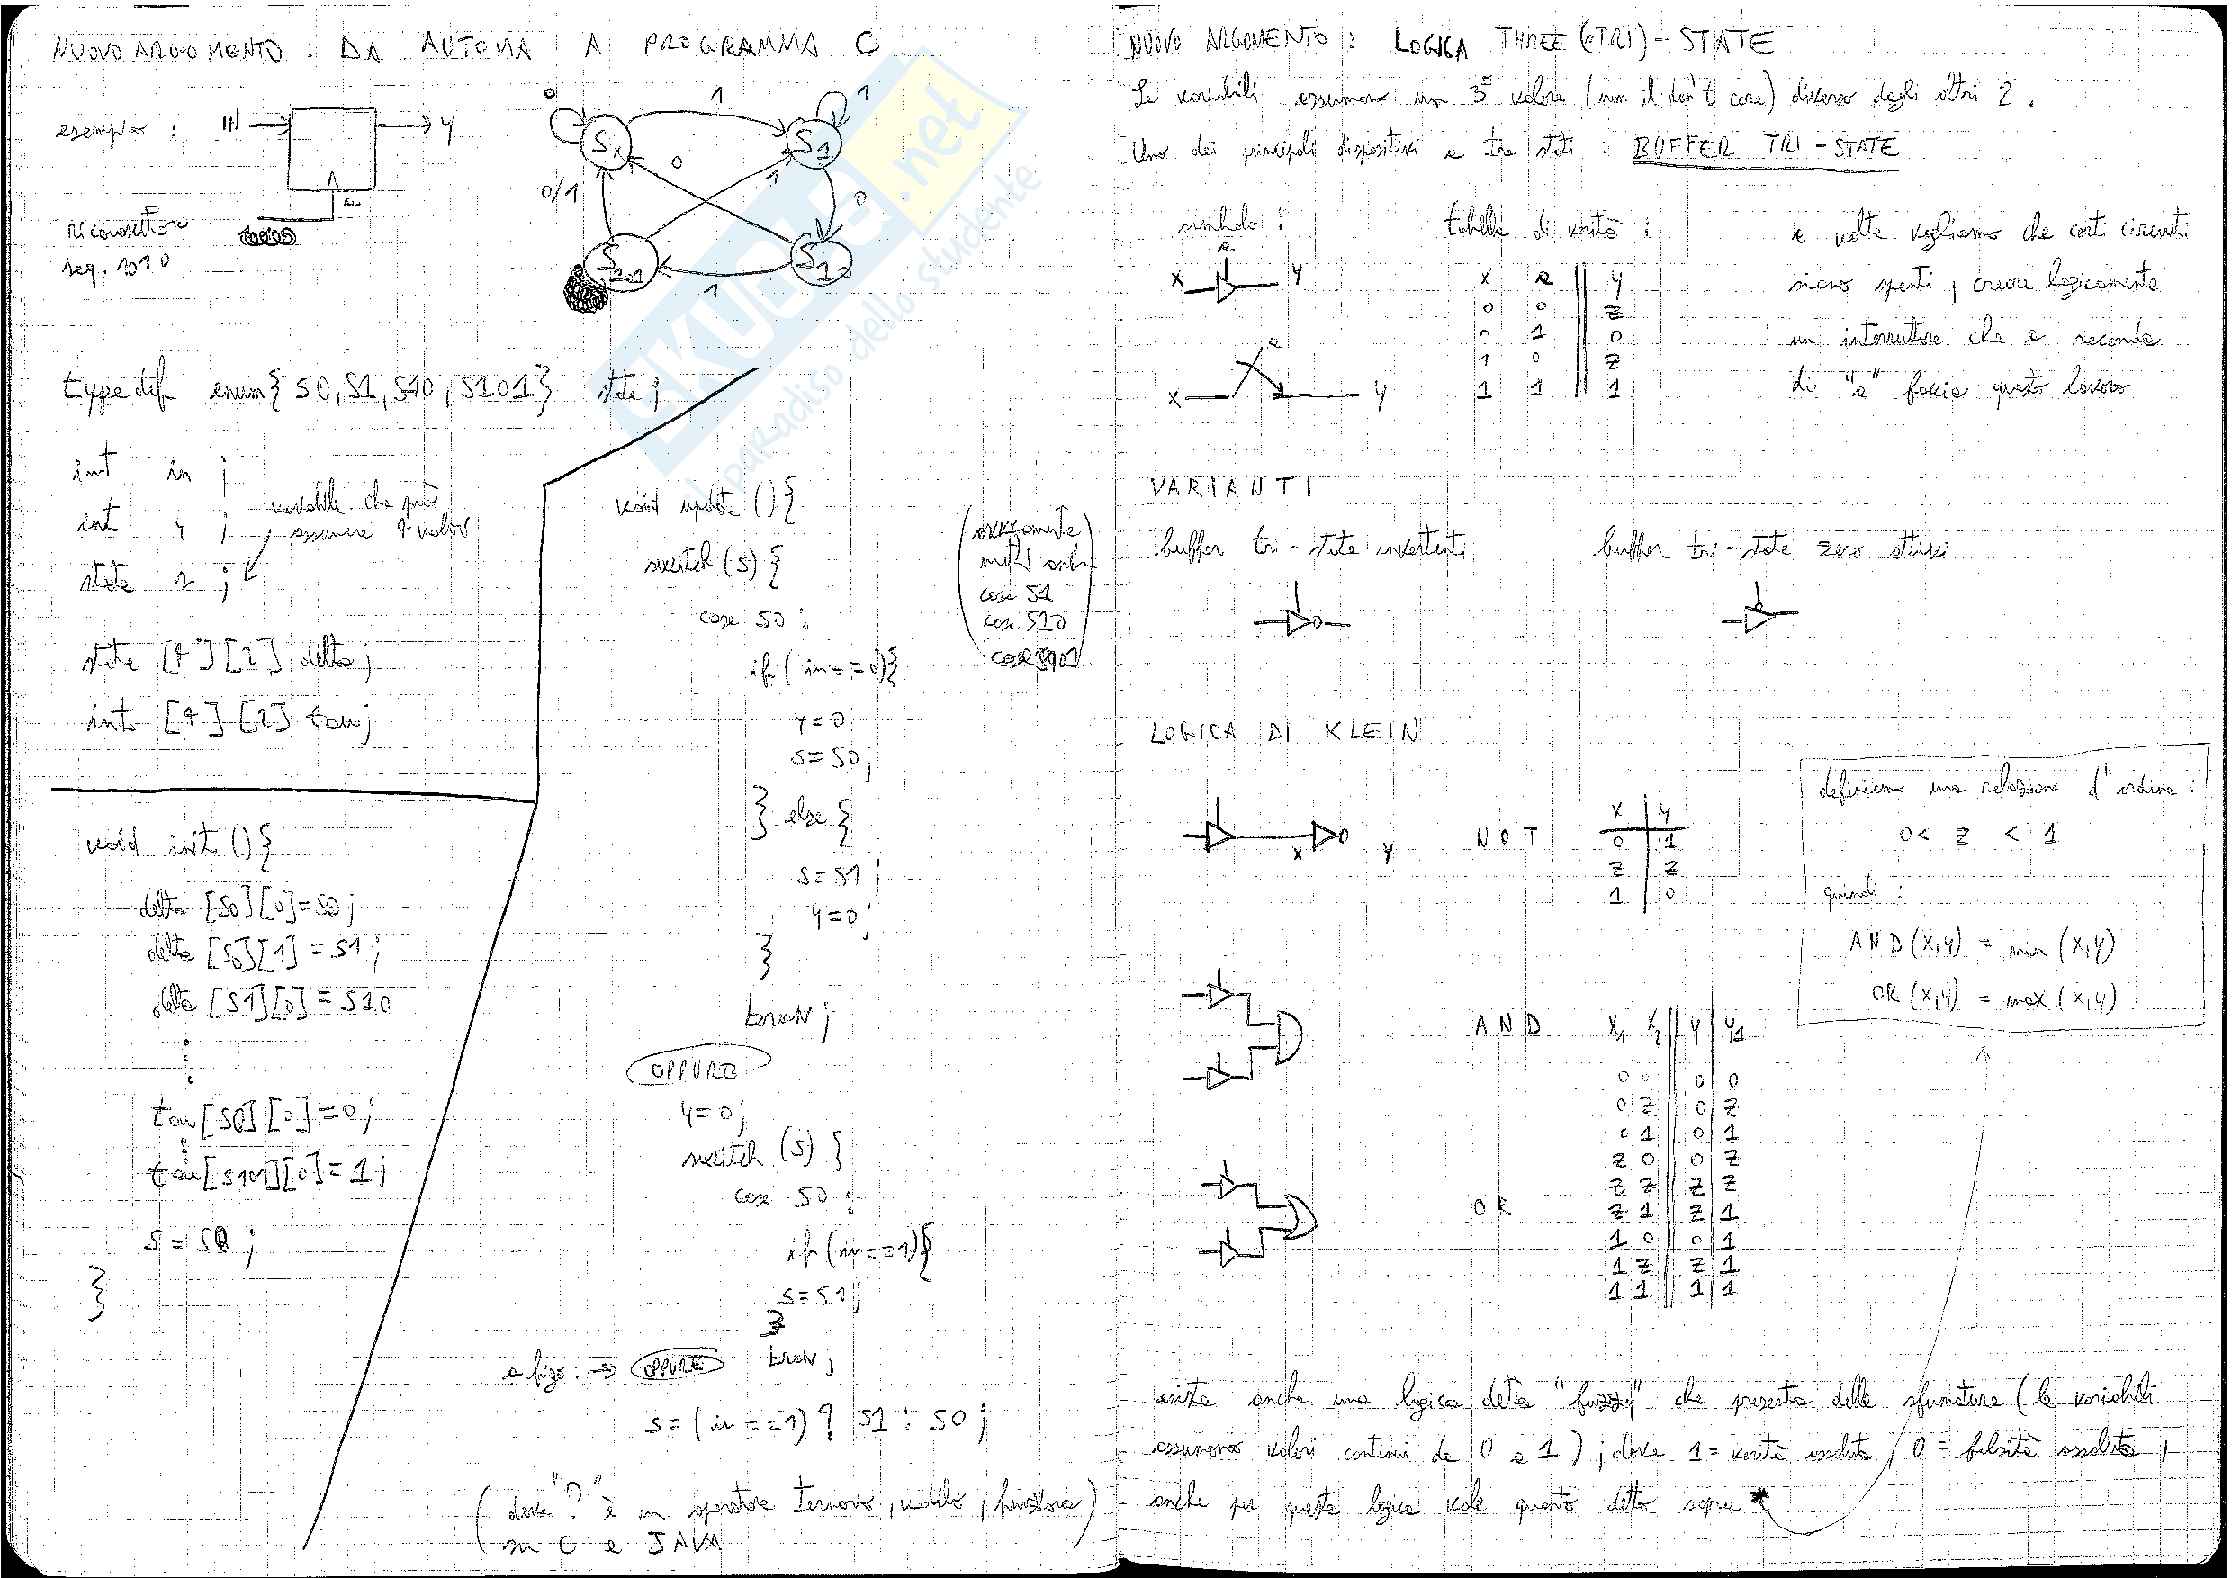 NUOVO ARGOMENTO : DA AUTOMA A PROGRAMMA C
esempio : IN Y
riconoscitore
seq.
0 1 1
Sx S1
0 0/1 1 0
S101 S10
1
typedef enum{ S0, S1, S10, S101} state ;
int in ;
int y ; variabile che può
assumere 4 valori
state s ;
state [4] [2] delta ;
int [4] [2] tau ;
void init () {
delta [S0][0]=S0;
delta [S0][1] = S1;
delta [S1][0] = S10
tau [S0] [0] = 0;
tau [S101][0] = 1;
S = S0 ;
}
void update () {
switch (S) {
case S0 :
if ( in == 0){
y = 0
S = S0;
} else {
S = S1 ;
y = 0;
}
break ;
OPPURE
y = 0;
switch (S) {
case S0 :
if (in == 1){
S = S1;
}
break ;
OPPURE
S = (in == 1) ? S1 : S0 ;
( dove "?" è un operatore ternario, )
in C e JAVA
case S1
case S10
case S101
NUOVO ARGOMENTO : LOGICA THREE (o TRI) - STATE
Le variabili assumono un 3° valore (non il don't care) diverso dagli altri 2 .
Uno dei principali dispositivi a tre stati : BUFFER TRI - STATE
simbolo : tabella di verità : a volte vogliamo che certi circuiti
siano spenti , creare logicamente
un interruttore che a seconda
di "a" faccia questo lavoro
a
X Y
a
X Y
X a Y
0 0 Z
0 1 0
1 0 Z
1 1 1
VARIANTI
buffer tri - state invertenti buffer tri - state zero attivi
LOGICA DI KLEIN
X Y NOT
X Y
0 1
Z Z
1 0
definiamo una relazione d'ordine :
0 < Z < 1
quindi :
AND (X,Y) = min (X,Y)
OR (X,Y) = max (X,Y)
AND
OR
X1 X2 Y Y1
0 0 0 0
0 Z 0 Z
0 1 0 1
Z 0 0 Z
Z Z Z Z
Z 1 Z 1
1 0 0 1
1 Z Z 1
1 1 1 1
esiste anche una logica detta "fuzzy" che presenta delle sfumature ( le variabili
assumono valori continui da 0 a 1 ) ; dove 1 = verità assoluta , 0 = falsità assoluta ,
anche per questa logica vale quanto detto sopra *
SKUOLA.net
il paradiso dello studente